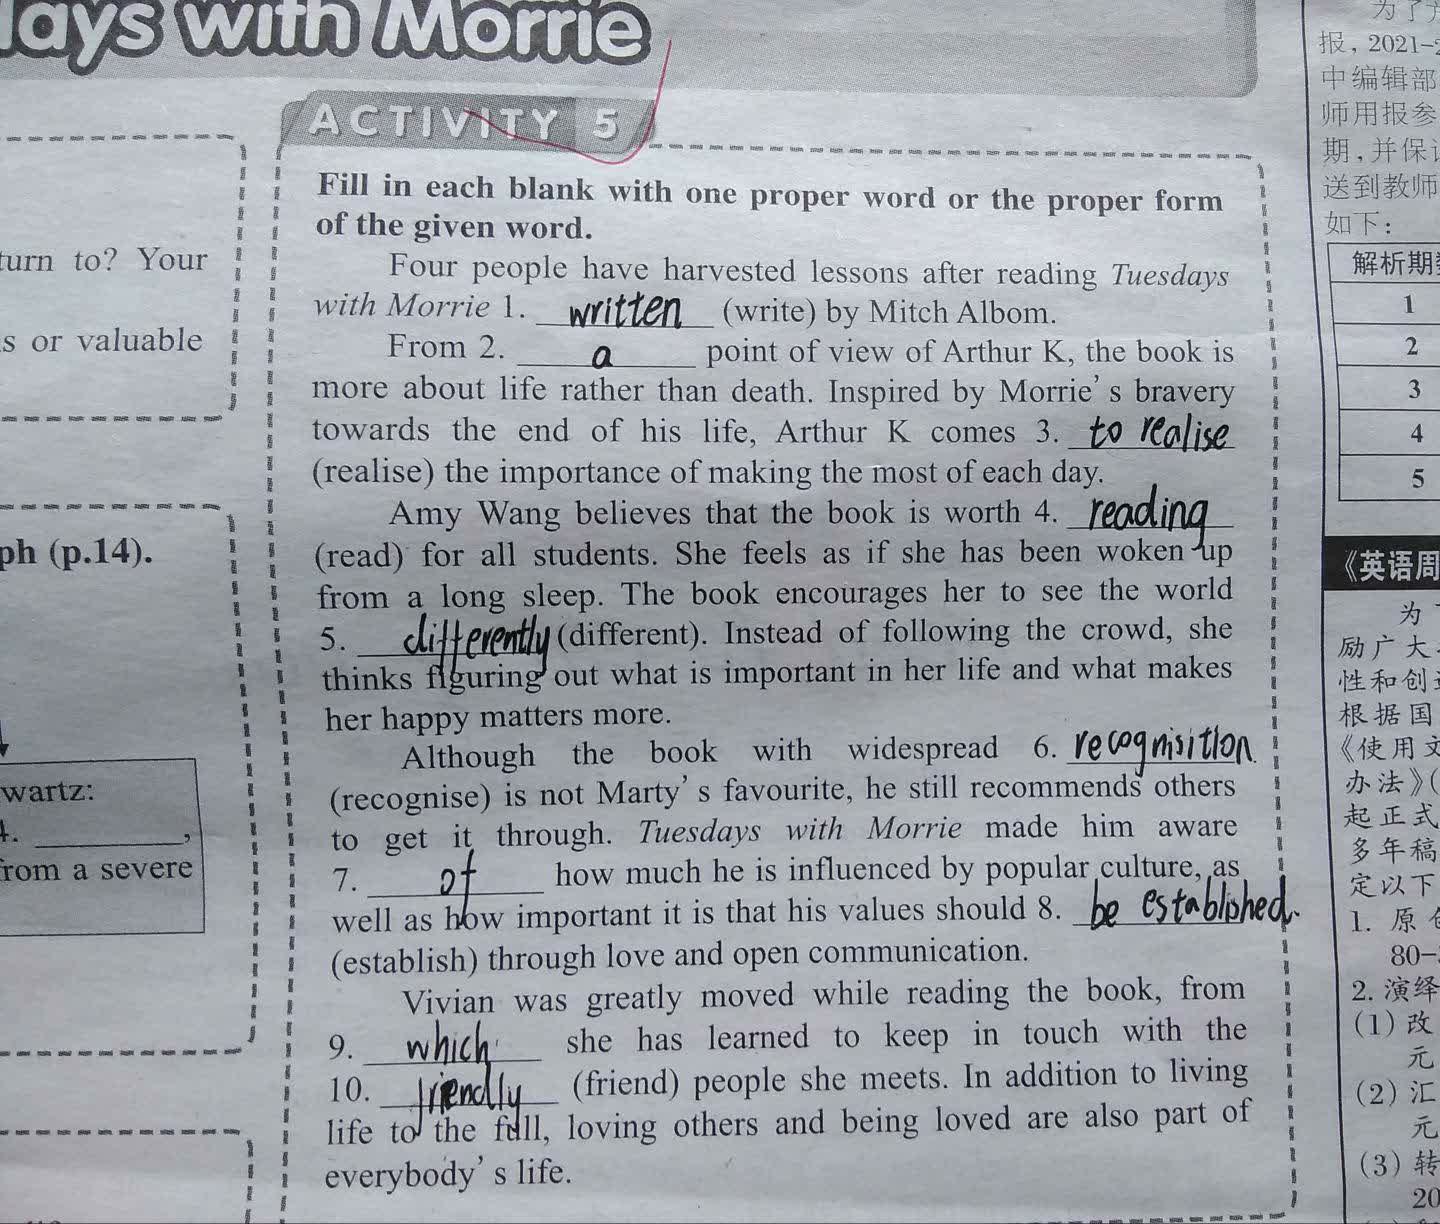 days with Morrie
ACTIVITY 5
Fill in each blank with one proper word or the proper form
of the given word.
Four people have harvested lessons after reading Tuesdays
with Morrie 1. written (write) by Mitch Albom.
From 2. a point of view of Arthur K, the book is
more about life rather than death. Inspired by Morrie's bravery
towards the end of his life, Arthur K comes 3. to realise
(realise) the importance of making the most of each day.
Amy Wang believes that the book is worth 4. reading
(read) for all students. She feels as if she has been woken up
from a long sleep. The book encourages her to see the world
5. differently (different). Instead of following the crowd, she
thinks figuring out what is important in her life and what makes
her happy matters more.
Although the book with widespread 6. recognisition
(recognise) is not Marty's favourite, he still recommends others
to get it through. Tuesdays with Morrie made him aware
7. of how much he is influenced by popular culture, as
well as how important it is that his values should 8. be established.
(establish) through love and open communication.
Vivian was greatly moved while reading the book, from
9. which she has learned to keep in touch with the
10. friendly (friend) people she meets. In addition to living
life to the full, loving others and being loved are also part of
everybody's life.
turn to? Your
s or valuable
ph (p.14).
wartz:
4. ________,
from a severe
为了
报，2021-2
中编辑部
师用报参
期，并保
送到教师
如下：
解析期
1
2
3
4
5
《英语周
为
励广大
性和创
根据国
《使用文
办法》(
起正式
多年稿
定以下
1. 原
80-
2. 演绎
(1) 改
元
(2) 汇
元
(3) 转
20